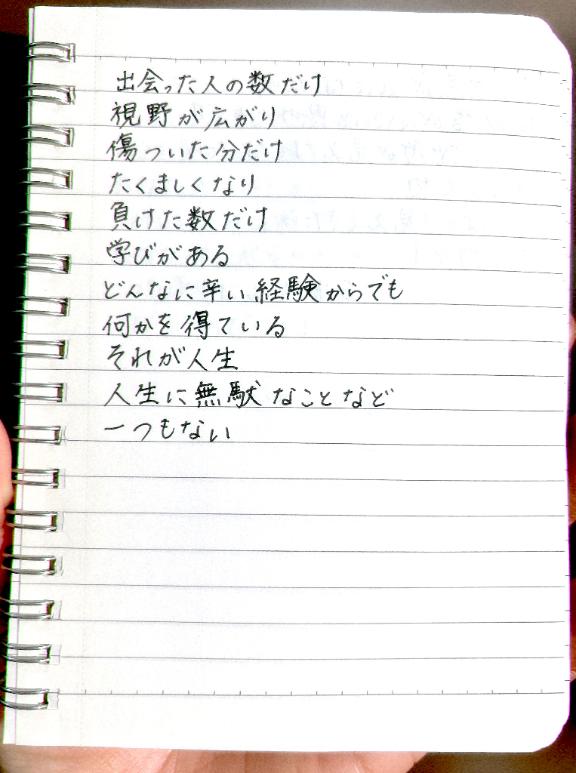 出会った人の数だけ
視野が広がり
傷ついた分だけ
たくましくなり
負けた数だけ
学びがある
どんなに辛い経験からでも
何かを得ている
それが人生
人生に無駄なことなど
一つもない